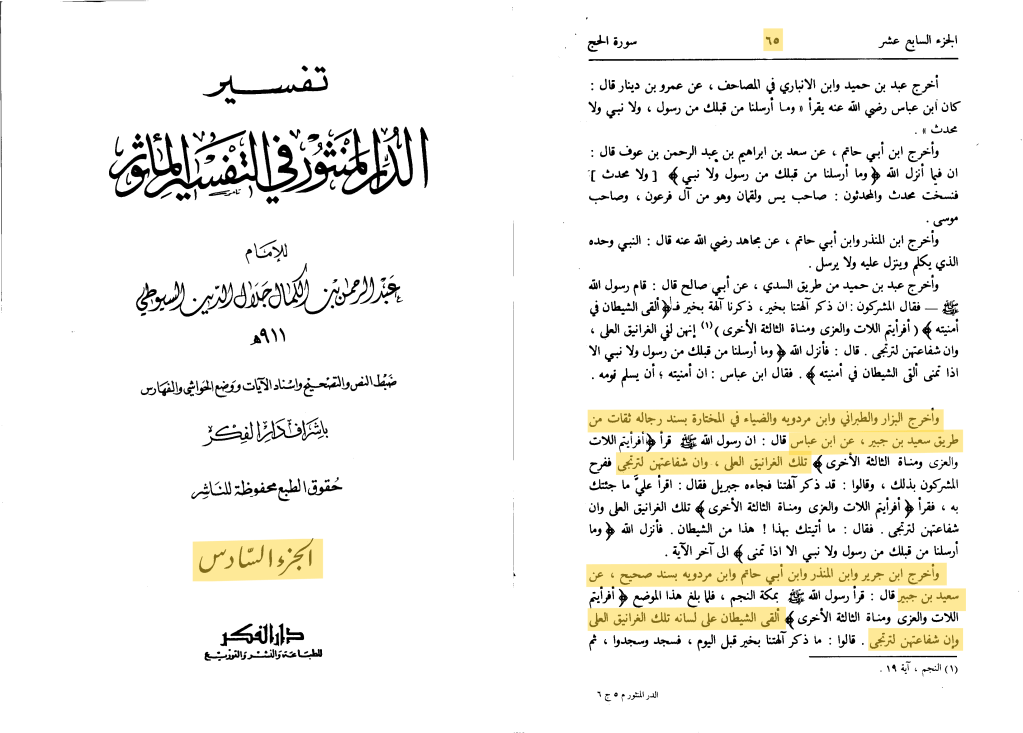 تفسير
الدر المنثور في التفسير المأثور
للإمام
عبد الرحمن بن الكمال جلال الدين السيوطي
٩١١ هـ
ضبط النص والتصحيح واسناد الآيات ووضع الحواشي والفهارس
باشراف دار الفكر
حقوق الطبع محفوظة للناشر
الجزء السادس
دار الفكر
للطباعة والنشر والتوزيع
الجزء السابع عشر ٦٥ سورة الحج
أخرج عبد بن حميد وابن الانباري في المصاحف ، عن عمرو بن دينار قال :
كان ابن عباس رضي الله عنه يقرأ « وما أرسلنا من قبلك من رسول ، ولا نبي ولا
محدث » .
وأخرج ابن أبي حاتم ، عن سعد بن ابراهيم بن عبد الرحمن بن عوف قال :
ان فيما أنزل الله ﴿ وما أرسلنا من قبلك من رسول ولا نبي ﴾ [ ولا محدث ]
فنسخت محدث والمحدثون : صاحب يس ولقمان وهو من آل فرعون ، وصاحب
موسى .
وأخرج ابن المنذر وابن أبي حاتم ، عن مجاهد رضي الله عنه قال : النبي وحده
الذي يكلم وينزل عليه ولا يرسل .
وأخرج عبد بن حميد من طريق السدي ، عن أبي صالح قال : قام رسول الله
ﷺ — فقال المشركون : ان ذكر آلهتنا بخير ، ذكرنا آلهة بخير فـ﴿ألقى الشيطان في
أمنيته ﴾ ( أفرأيتم اللات والعزى ومناة الثالثة الأخرى )(١) إنهن لفي الغرانيق العلى ،
وان شفاعتهن لترتجى . قال : فأنزل الله ﴿ وما أرسلنا من قبلك من رسول ولا نبي الا
اذا تمنى ألقى الشيطان في أمنيته ﴾ . فقال ابن عباس : ان أمنيته ؛ أن يسلم قومه .
وأخرج البزار والطبراني وابن مردويه والضياء في المختارة بسند رجاله ثقات من
طريق سعيد بن جبير ، عن ابن عباس قال : ان رسول الله ﷺ قرأ ﴿أفرأيتم اللات
والعزى ومناة الثالثة الأخرى ﴾ تلك الغرانيق العلى ، وان شفاعتهن لترتجى ففرح
المشركون بذلك ، وقالوا : قد ذكر آلهتنا فجاءه جبريل فقال : اقرأ عليَّ ما جئتك
به ، فقرأ ﴿ أفرأيتم اللات والعزى ومناة الثالثة الأخرى ﴾ تلك الغرانيق العلى وان
شفاعتهن لترتجى . فقال : ما أتيتك بهذا ! هذا من الشيطان . فأنزل الله ﴿ وما
أرسلنا من قبلك من رسول ولا نبي الا اذا تمنى ﴾ الى آخر الآية .
وأخرج ابن جرير وابن المنذر وابن أبي حاتم وابن مردويه بسند صحيح ، عن
سعيد بن جبير قال : قرأ رسول الله ﷺ بمكة النجم ، فلما بلغ هذا الموضع ﴿ أفرأيتم
اللات والعزى ومناة الثالثة الأخرى ﴾ ألقى الشيطان على لسانه تلك الغرانيق العلى
وإن شفاعتهن لترتجى . قالوا : ما ذكر آلهتنا بخير قبل اليوم ، فسجد وسجدوا ، ثم
(١) النجم ، آية ١٩ .
الدر المنثور م ٥ ج ٦